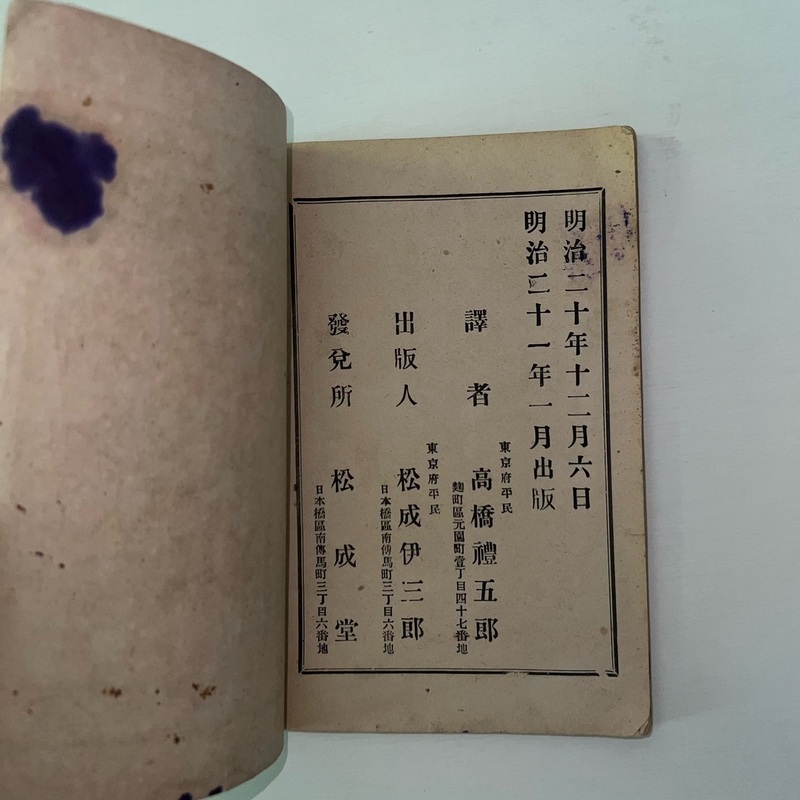 明治二十年十二月六日
明治二十一年一月出版
譯者
東京府平民
高橋禮五郎
麹町區元園町壹丁目四十七番地
出版人
東京府平民
松成伊三郎
日本橋區南傳馬町三丁目六番地
發兌所
松成堂
日本橋區南傳馬町三丁目六番地